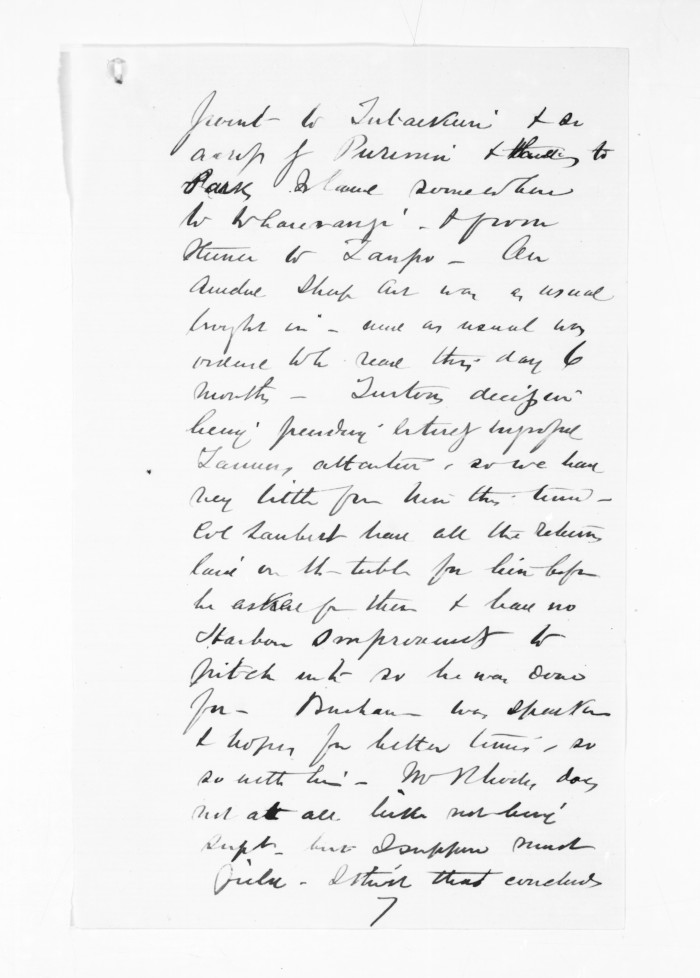 point to Tutaekuri & on
across of Puremu & thence to
Pask, Island somewhere
to Wharerangi - & from
thence to Taupo - An
Amdne Sheep Act was as usual
brought in - and as usual was
ordered to be read this day 6
months -
being pending entirely
Tanners attention, so we had
very little from him this time -
Col Lambert had all the returns
laid on the table for him before
he asked for them & had no
Harbour Improvements to
pitch into so he was done
for - Buchanan was speaker
& hopes for better times, so
so with him - Mr Rhodes does
not at all like not being
Supt - but I suppose must
yield - I think that concludes
7